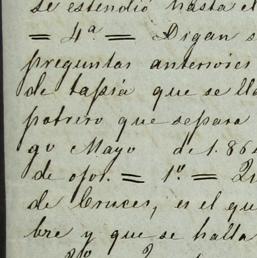 se estendió hasta el
= 4ª = Digan s
preguntas anteriores
de tapia que se lla
potrero que separa
go Mayo de 1.864
de ofol. = 1º. =
de Cruces, es el que
bre y que se halla